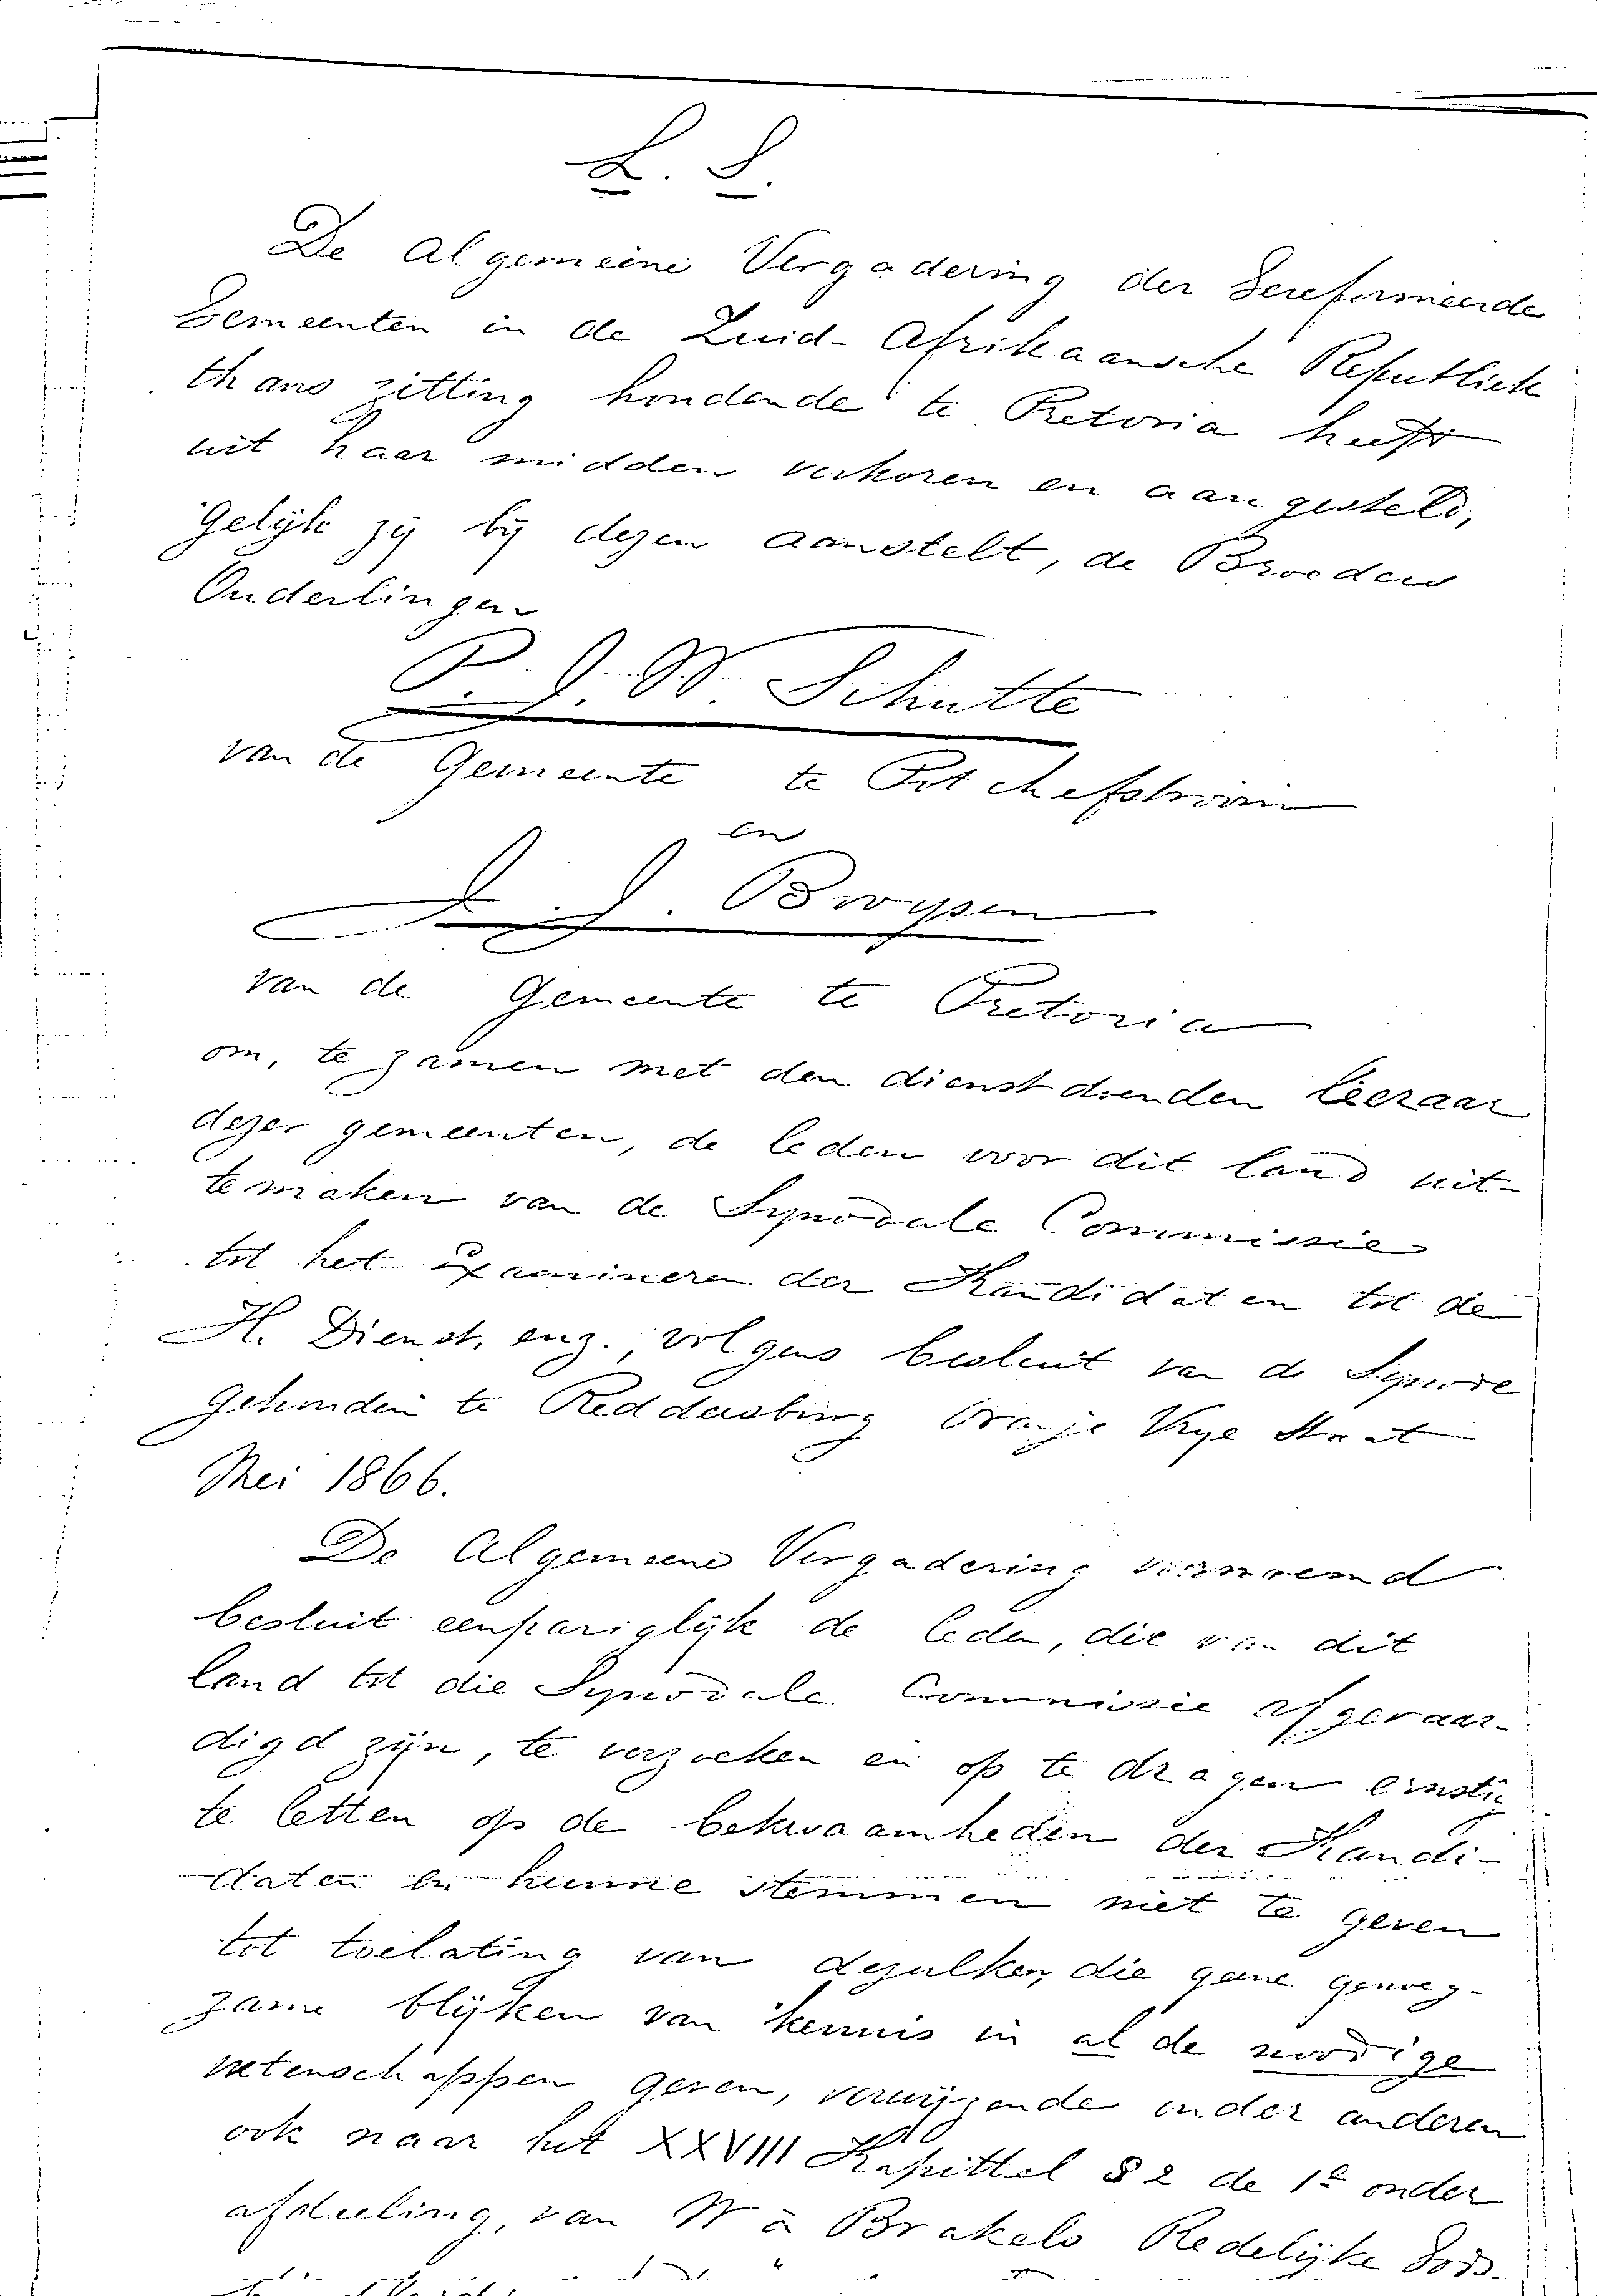 L. S.
De Algemeene Vergadering der Gereformeerde
Gemeenten in de Zuid-Afrikaansche Republiek
thans zitting houdende te Pretoria heeft
uit haar midden verkoren en aangesteld,
Gelijk zij bij dezen aanstelt, de Broeders
Ouderlingen
P. J. W. Schutte
van de Gemeente te Potchefstroom
en
J. J. Bruyn
van de Gemeente te Pretoria
om, te zamen met den dienstdoenden Leeraar
dezer gemeenten, de leden voor dit land uit-
temaken van de Synodale Commissie
tot het Examineren der Kandidaten tot de
H. Dienst, enz., volgens besluit van de Synode
gehouden te Reddersburg Oranje Vrye Staat
Mei 1866.
De Algemeene Vergadering voornoemd
besluit eenpariglijk de leden, die van dit
land tot die Synodale Commissie afgevaar-
digd zijn, te verzoeken en op te dragen ernstig
te letten op de bekwaamheden der Kandi-
daten en hunne stemmen niet te geven
tot toelating van dezulken, die geene genoeg-
zame blijken van kennis in al de noodige
wetenschappen geven, verwijzende onder anderen
ook naar het XXVIII Kapittel § 2 de 1e onder
afdeeling, van W à Brakels Redelijke God-